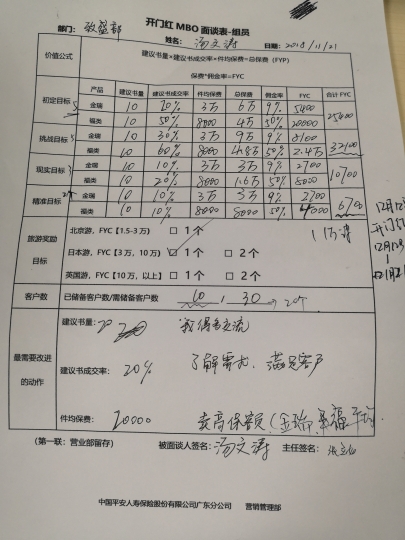 开门红 MBO 面谈表-组员
部门: 致盛部 姓名: 汤文涛 日期: 2018/11/21
价值公式 建议书量*建议书成交率*件均保费=总保费(FYP)
保费*佣金率=FYC
产品 建议书量 建议书成交率 件均保费 总保费 佣金率 FYC 合计FYC
初定目标 金瑞 10 20% 3万 6万 9% 5400 25400
福类 10 50% 8000 4万 50% 20000
挑战目标 金瑞 10 30% 3万 9万 9% 8100 32100
福类 10 60% 8000 4.8万 50% 2.4万
现实目标 金瑞 10 10% 3万 3万 9% 2700 10700
福类 10 20% 8000 1.6万 50% 8000
精准目标 金瑞 10 10% 3万 3万 9% 2700 6700
福类 10 10% 8000 8000 50% 4000
旅游奖励目标
北京游,FYC【1.5-3万】 □ 1个
日本游,FYC【3万,10万】 □ 1个 □ 2个
英国游,FYC【10万,以上】 □ 1个 □ 2个
客户数 已储备客户数/需储备客户数 10 / 30 → 20个
最需要改进的动作
建议书量: 20
建议书成交率: 20% 了解需求,满足客户
件均保费: 20000 卖高保额(金瑞,
(第一联:营业部留存) 被面谈人签名: 汤文涛 主任签名:
中国平安人寿保险股份有限公司广东分公司 营销管理部